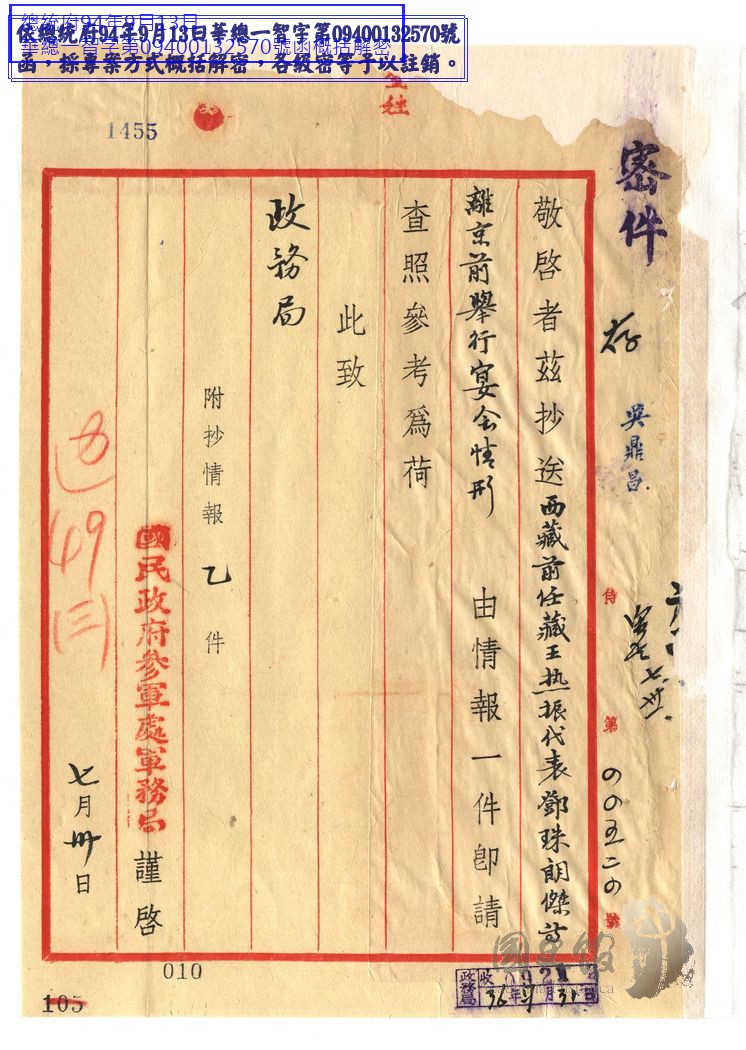 總統府94年9月13日
華總一智字第09400132570號函概括解密
依總統府94年9月13日華總一智字第09400132570號
函，採專案方式概括解密，各級密等予以註銷。
1455
密件
存
吳鼎昌
侍 第 00五二0 號
敬啓者茲抄送西藏前任藏王热振代表鄧珠朗傑等
離京前舉行宴会情形 由情報一件卽請
查照參考爲荷
此致
政務局
附抄情報乙件
國民政府參軍處軍務局 謹啓
七月卅日
49
(三)
010
105
政務局
收
36年7月31日
國史館